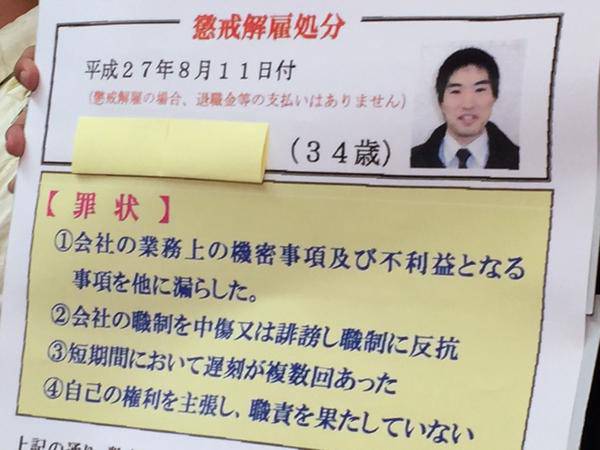 懲戒解雇処分
平成27年8月11日付
(懲戒解雇の場合、退職金等の支払いはありません)
(34歳)
【罪状】
①会社の業務上の機密事項及び不利益となる
事項を他に漏らした。
②会社の職制を中傷又は誹謗し職制に反抗
③短期間において遅刻が複数回あった
④自己の権利を主張し、職責を果たしていない
上記の通り